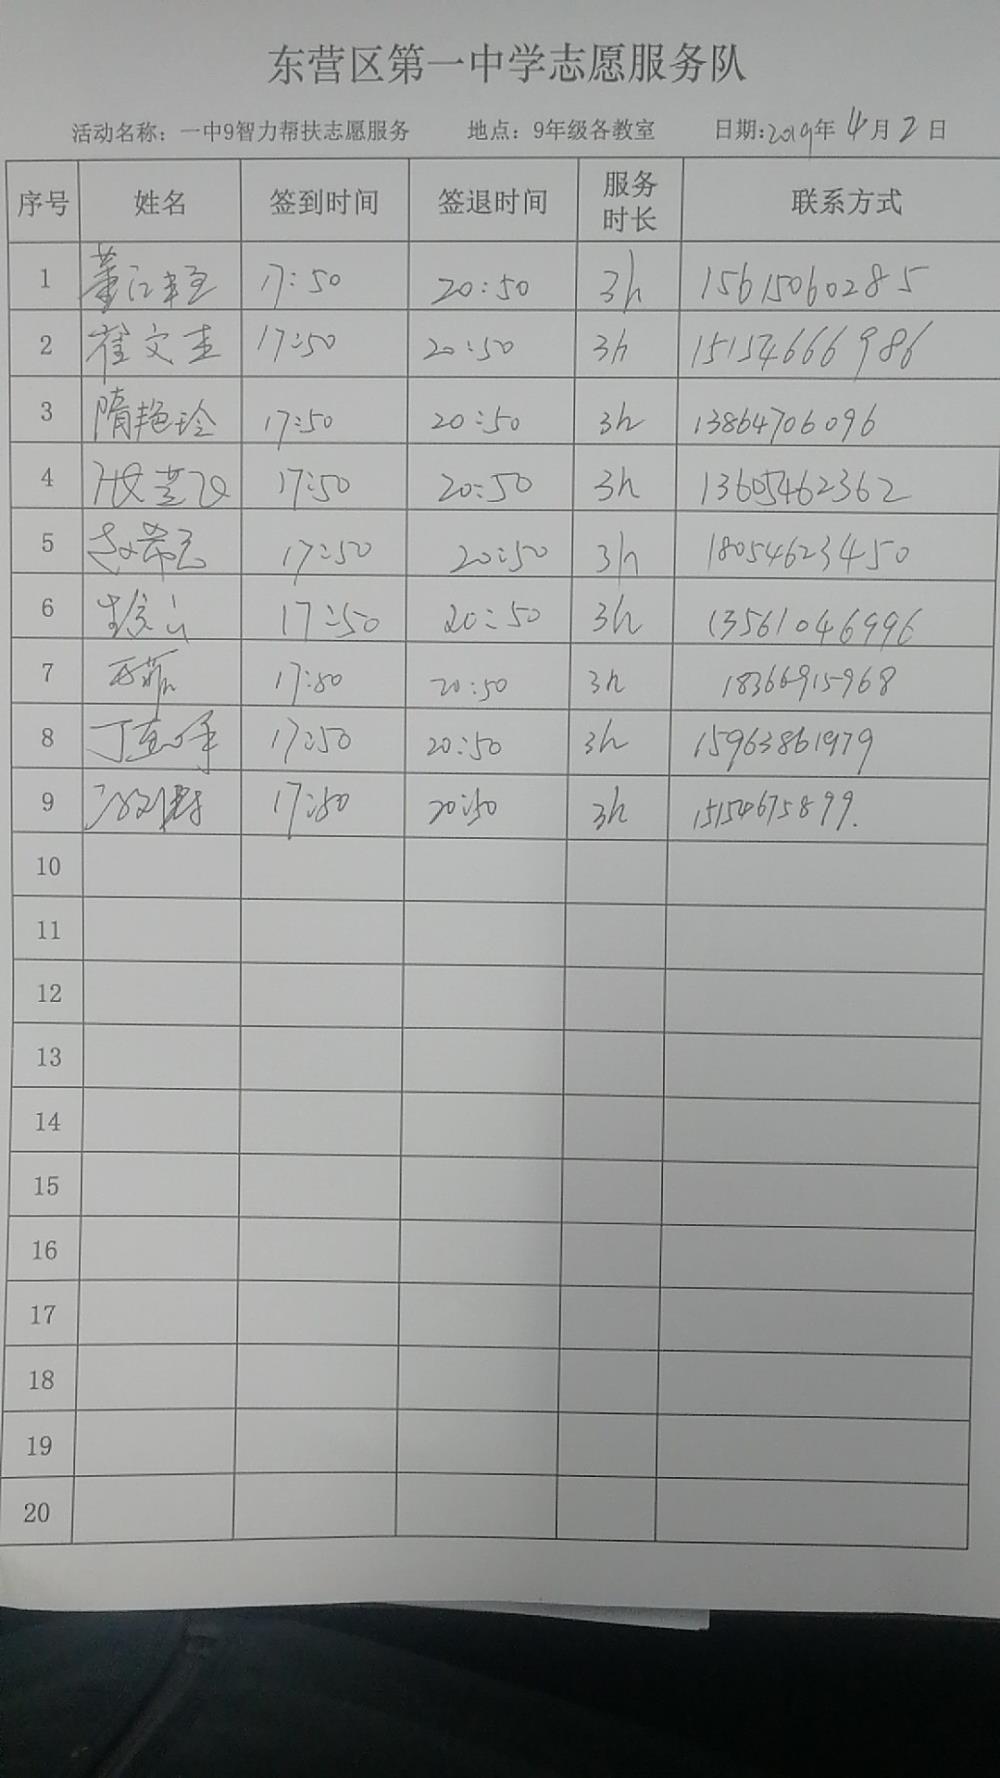 东营区第一中学志愿服务队
活动名称：一中9智力帮扶志愿服务 地点：9年级各教室 日期:2019年4月2日
序号 姓名 签到时间 签退时间 服务时长 联系方式
1 17:50 20:50 3h 15615060285
2 崔文圭 17:50 20:50 3h 15154666986
3 隋艳玲 17:50 20:50 3h 13864706096
4 17:50 20:50 3h 13605462362
5 17:50 20:50 3h 18054623450
6 17:50 20:50 3h 13561046996
7 17:50 20:50 3h 18366915968
8 17:50 20:50 3h 15963861979
9 17:50 20:50 3h 15154675899.
10
11
12
13
14
15
16
17
18
19
20